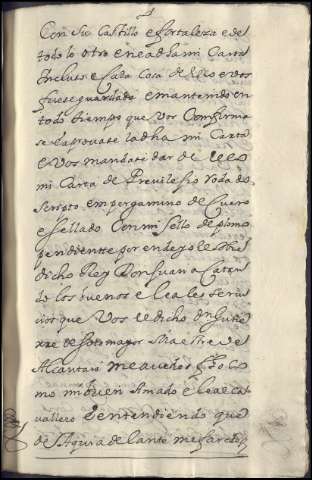 Con su Castillo e fortaleza e de
todo lo otro en ea dha mi Carta
Incluso e Cada Cosa dello e vos
fuese guardada e mantenida en
todo tiempo que vos Confirma
se e aprovase la dha mi Carta
e vos mandase dar de ello
mi Carta de Previlegio rodado
scripto em pergamino de Cuero
e sellado Con mi sello de plomo
pendiente por ende yo el sobre
dicho Rey Don Juan a Catan
do los buenos e leales servi
cios que vos el dicho Don Gutie
rre de sotomayor Maestre de
Alcantara me avedes fecho Co
mo mi buen Amado e leal ca
vallero e entendiendo que
de Aqui adelante me fareis